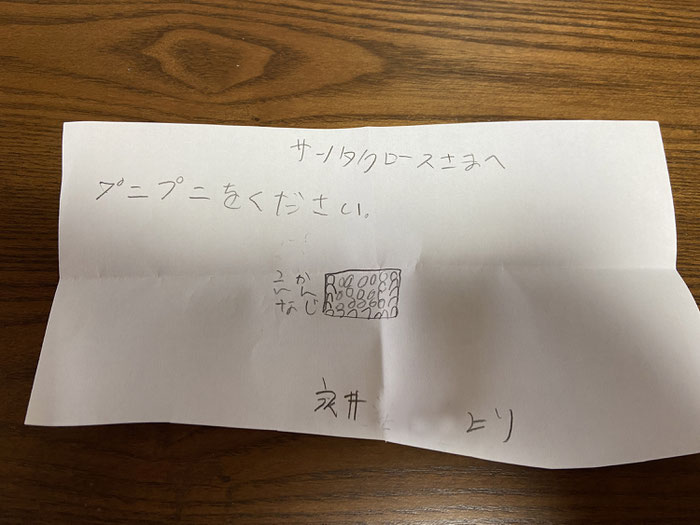 サンタクロースさまへ
プニプニをください。
こんな
かんじ
永井 より